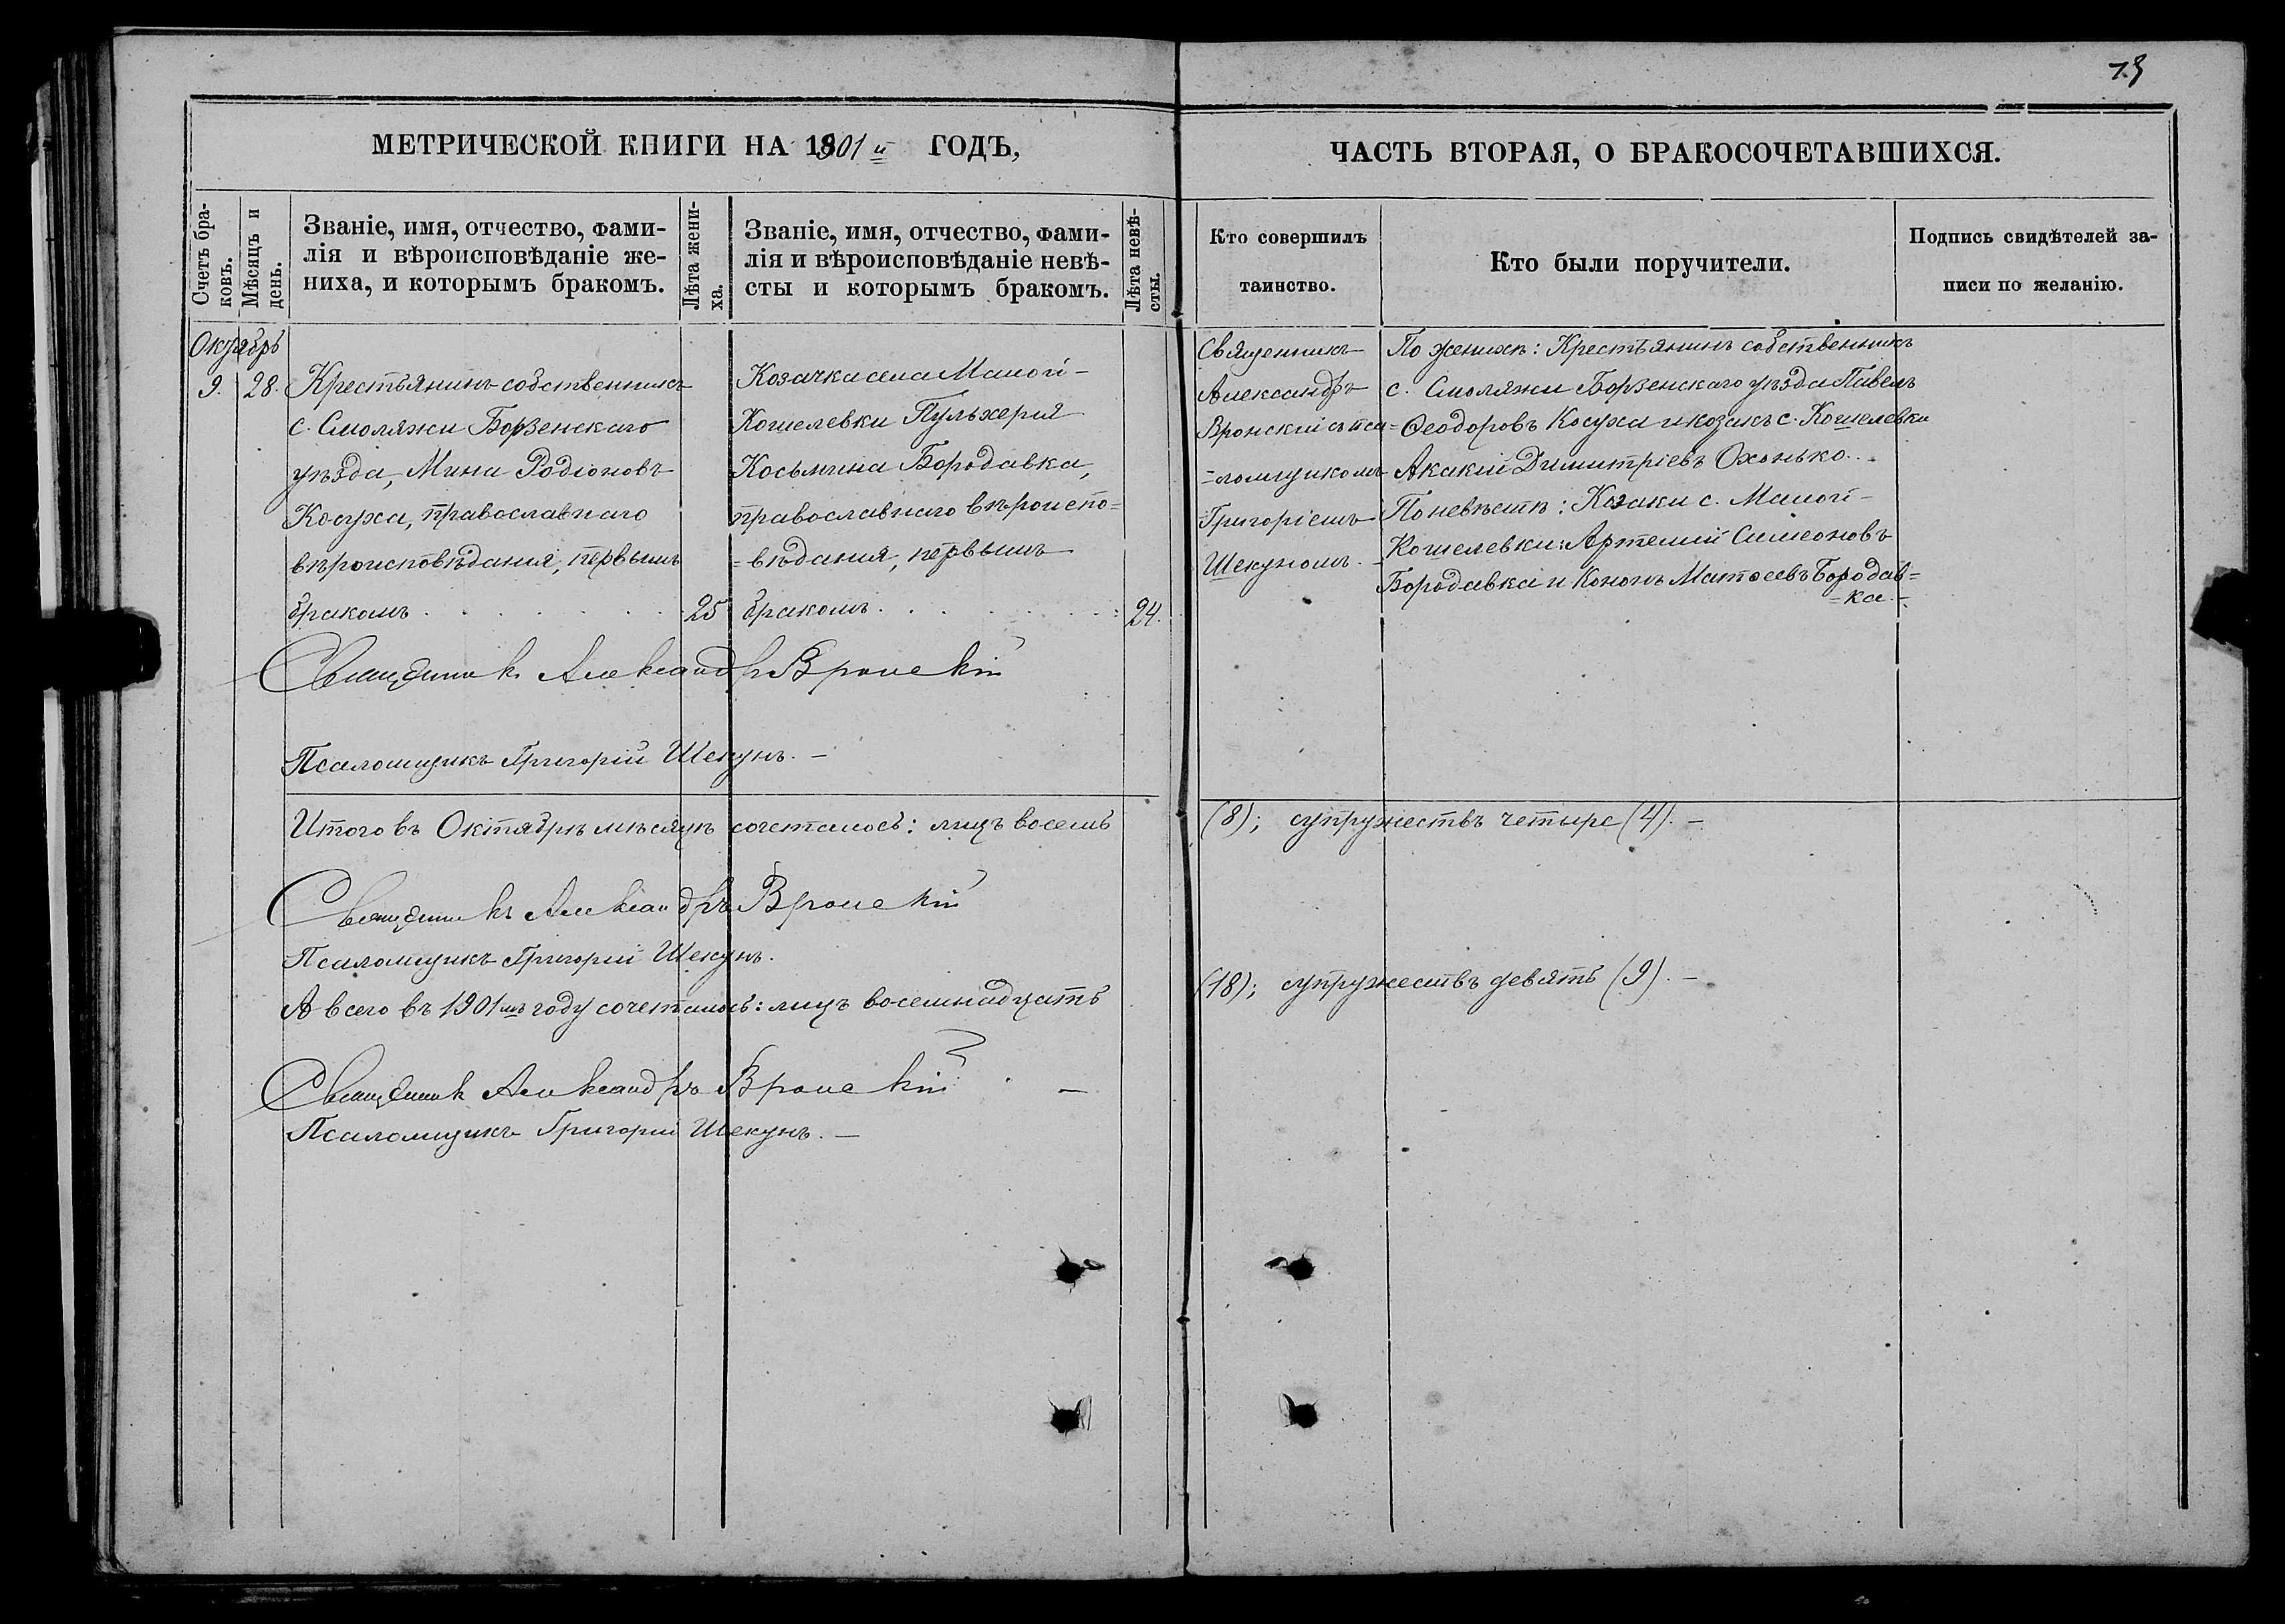 73
МЕТРИЧЕСКОЙ КНИГИ НА 1901й ГОДЪ,
ЧАСТЬ ВТОРАЯ, О БРАКОСОЧЕТАВШИХСЯ.
Счетъ бра-
ковъ.
Мѣсяцъ и
день.
Званіе, имя, отчество, фами-
лія и вѣроисповѣданіе же-
ниха, и которымъ бракомъ.
Лѣта жени-
ха.
Званіе, имя, отчество, фами-
лія и вѣроисповѣданіе невѣ-
сты и которымъ бракомъ.
Лѣта невѣ-
сты.
Кто совершилъ
таинство.
Кто были поручители.
Подпись свидѣтелей за-
писи по желанію.
Октябрь
9. 28.
Крестьянинъ собственникъ
с. Смоляжи Борзенскаго
уѣзда, Мина Родіоновъ
Косуха, православнаго
вѣроисповѣданія, первымъ
бракомъ . . . . . . . 25
Козачка села Малой-
Кошелевки Пульхерія
Косьмина Бородавка,
православнаго вѣроиспо=
=вѣданія, первымъ
бракомъ . . . . . . . 24.
Священникъ
Александръ
Вронскій съ пса=
=ломщикомъ
Григоріемъ
Шекуномъ.
По женихѣ: Крестьянинъ собственникъ
с. Смоляжи Борзенскаго уѣзда Павелъ
Ѳеодоровъ Косуха и козакъ с. Кошелевки
Акакій Димитріевъ Охонько.
По невѣстѣ: Козаки с. Малой-
Кошелевки: Артемій Симеоновъ
Бородавка и Кононъ Матѳеевъ Бородав=
=ка.-
Священникъ Александръ Вронскій
Псаломщикъ Григорій Шекунъ. -
Итого въ Октябрѣ мѣсяцѣ сочеталось: лицъ восемь
(8); супружествъ четыре (4). -
Священникъ Александръ Вронскій
Псаломщикъ Григорій Шекунъ.
А всего въ 1901мъ году сочеталось: лицъ восемнадцать
(18); супружествъ девять (9). -
Священникъ Александръ Вронскій -
Псаломщикъ Григорій Шекунъ. -